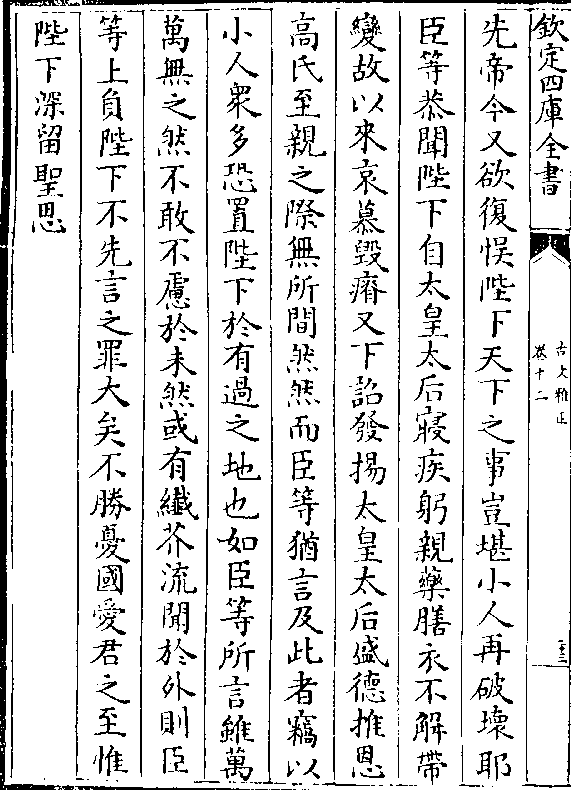 欽定四庫全書
古文雅正
卷十二
先帝今又欲復悮陛下天下之事豈堪小人再破壞耶
臣等恭聞陛下自太皇太后寢疾躬親藥膳衣不解帶
變故以來哀慕毀瘠又下詔發揚太皇太后盛德推恩
高氏至親之際無所間然然而臣等猶言及此者竊以
小人衆多恐置陛下於有過之地也如臣等所言雖萬
萬無之然不敢不慮於未然或有纖芥流聞於外則臣
等上負陛下不先言之罪大矣不勝憂國愛君之至惟
陛下深留聖思